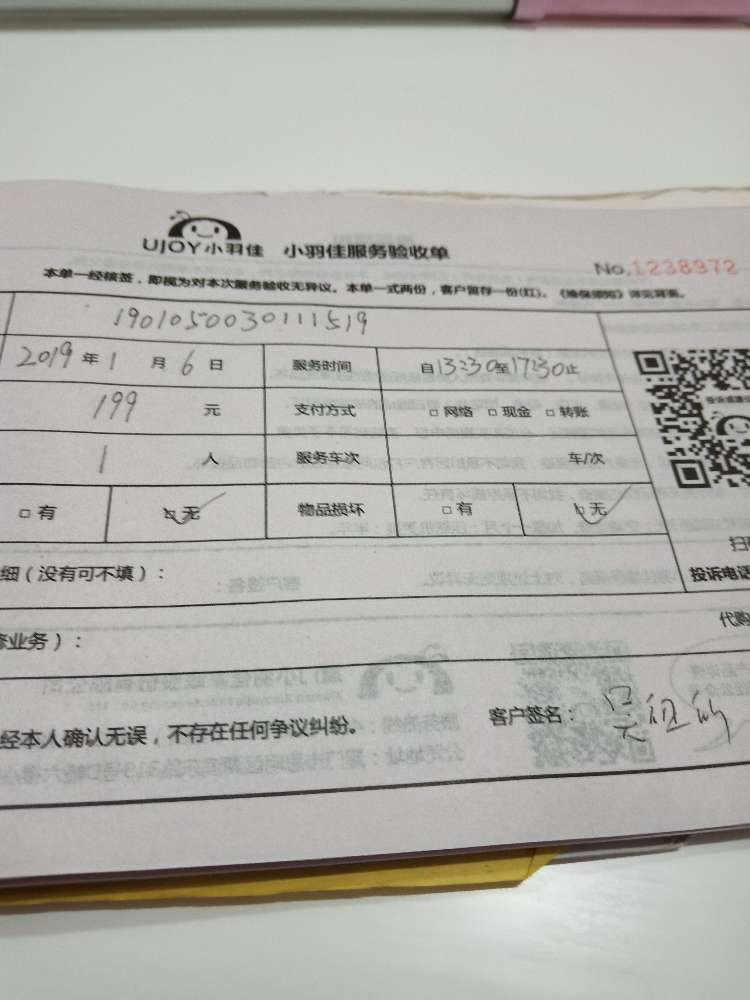 UJOY小羽佳 小羽佳服务验收单
No.1238972
本单一经核签，即视为对本次服务验收无异议。本单一式两份，客户留存一份(红)。《维保须知》详见背面。
1901050030111519
2019年1月6日 服务时间 自13:30至17:30止
199元 支付方式 □网络 □现金 □转账
1人 服务车次 车/次
□有 □无 物品损坏 □有 □无
细（没有可不填）：
投诉电话
业务）： 代购
经本人确认无误，不存在任何争议纠纷。 客户签名：吴祖